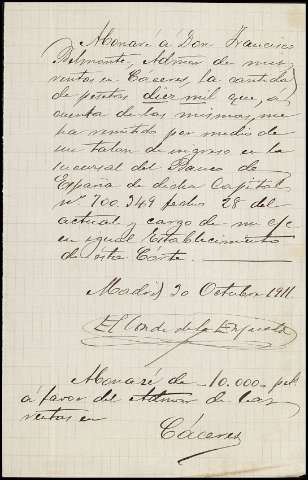 Abonaré á Don Francisco
Belmonte, Admor de mis
rentas en Cáceres, la cantidad
de pesetas diez mil que, a
cuenta de las mismas, me
ha remitido por medio de
un talon de ingreso en la
sucursal del Banco de
España de dicha Capital
nº 700.349 fecha 28 del
actual y cargo de mi c/c
en igual Establecimiento
de esta Córte.
Madrid 30 Octubre 1911
El Conde de la
Abonaré de 10.000 ptas
á favor del Admor de las
rentas en
Cáceres